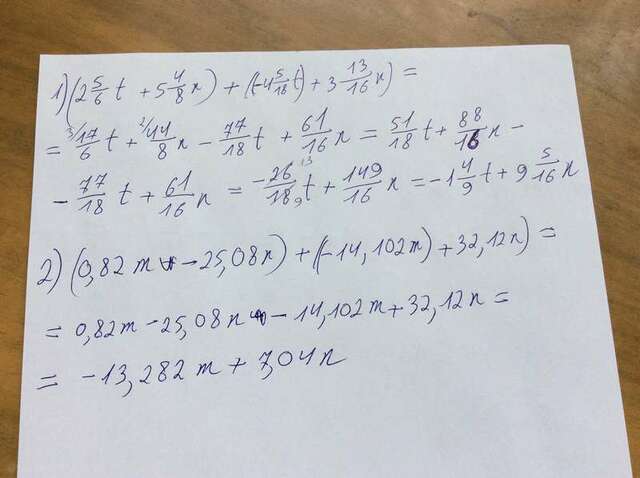 1) (2 5/6 t + 5 4/8 n) + (-4 5/18 t) + 3 13/16 n) =
= 3/ 17/6 t + 2/ 44/8 n - 77/18 t + 61/16 n = 51/18 t + 88/16 n -
- 77/18 t + 61/16 n = -26 13/18 9 t + 149/16 n = -1 4/9 t + 9 5/16 n
2) (0,82m - 25,08n) + (-14,102m) + 32,12n) =
= 0,82m - 25,08n - 14,102m + 32,12n =
= -13,282m + 7,04n